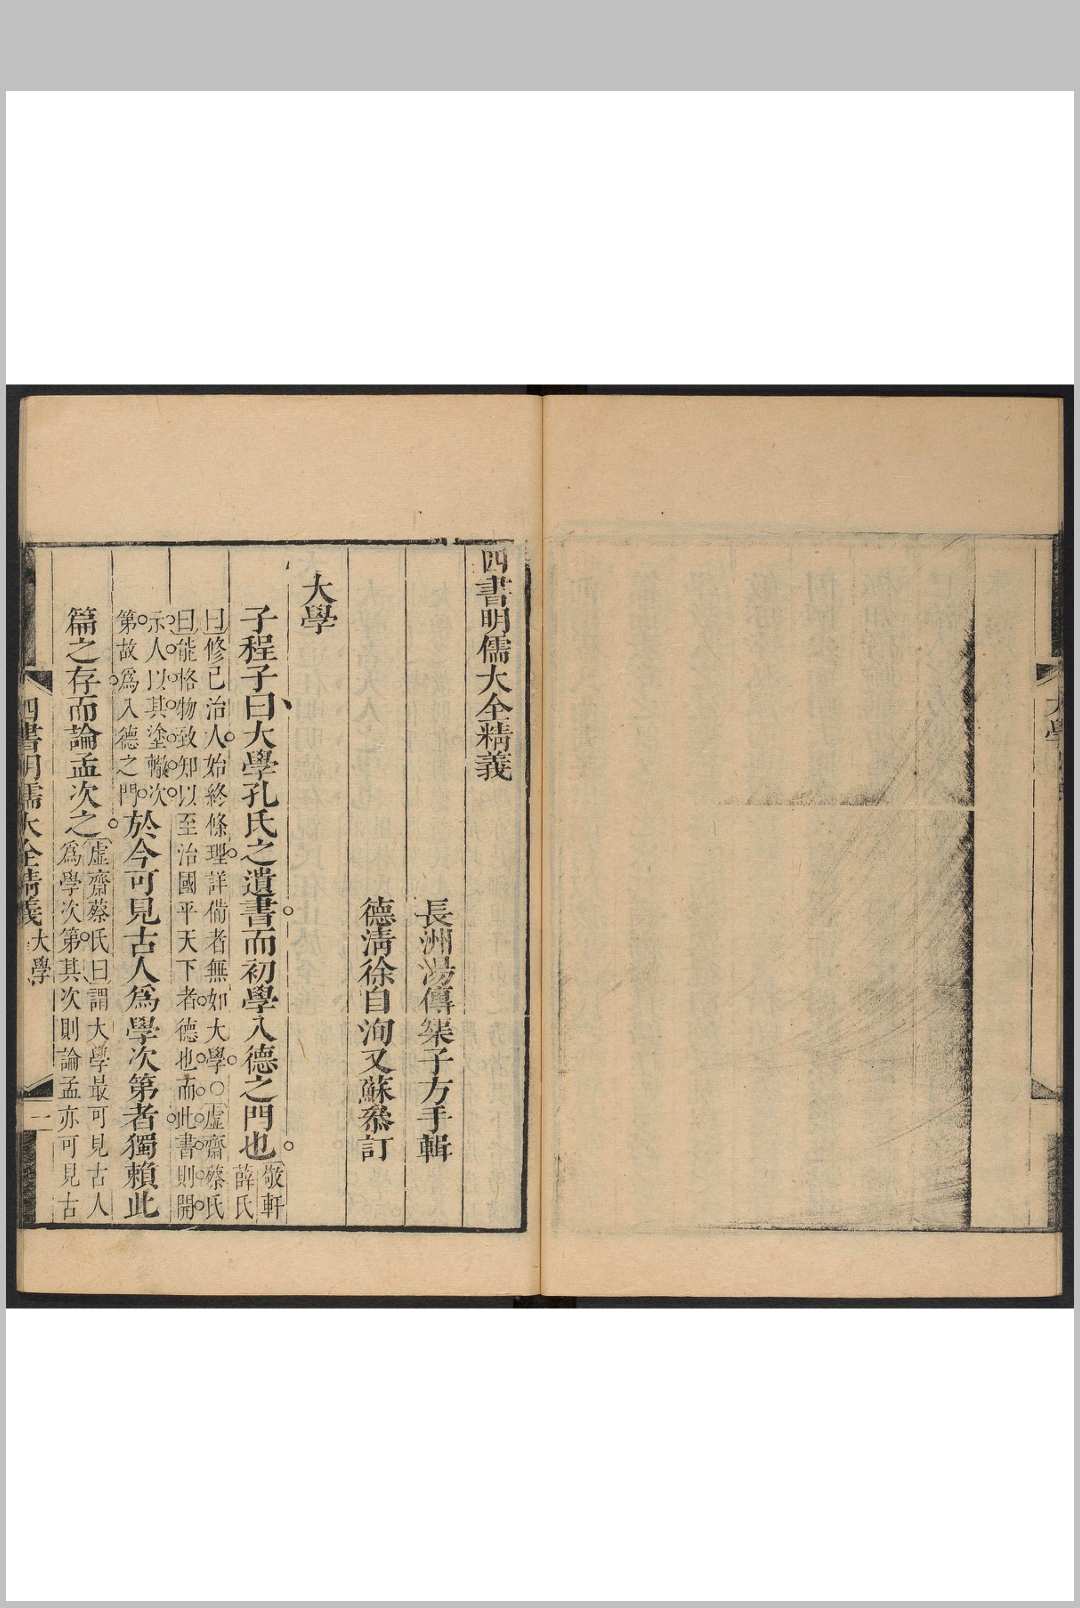 四書明儒大全精義
長洲湯傳榘子方手輯
德淸徐自洵又蘇叅訂
大學
子程子曰大學孔氏之遺書而初學入德之門也
敬軒
薛氏
曰修己治人始終條理詳備者無如大學○虛齋蔡氏
曰能格物致知以至治國平天下者德也而此書則開
示人以其塗轍次
第故爲入德之門
於今可見古人爲學次第者獨賴此
篇之存而論孟次之
虛齋蔡氏曰謂大學最可見古人
爲學次第其次則論孟亦可見古
四書明儒大全精義
大學
一